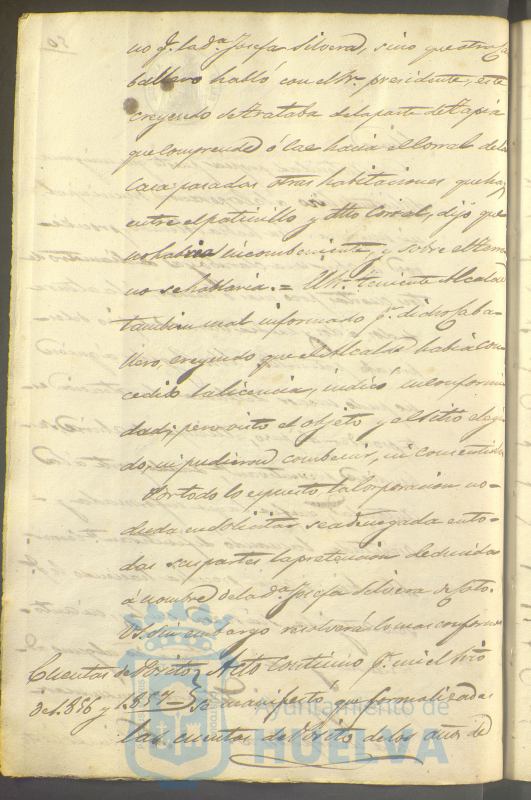 no pr. la da. Josefa Silvera, sino que otro Ca
ballero habló con el Sr. presidente, este
creyendo se trataba de la parte de tapia
que comprende ó cae hacia el Corral de la
Casa pasadas otras habitaciones que hay
entre el patinillo y dho Corral, dijo que
no habria incombeniente, y sobre el terre
no se hablaria. = El Sr. teniente Alcalde
tambien mal informado pr. dicho Caba-
llero, creyendo que el Alcalde habia con
cedido la licencia, indicó su conformi
dad; pero visto el objeto y el sitio elegi
do, ni pudieron combenir, ni consentirlo
Por todo lo espuesto, la Corporacion no
duda en solicitar sea denegada en to-
das sus partes la pretencion deducida
á nombre de la da. Josefa Silvera de Soto.
V.S. sin embargo resolverá lo mas conforme
Cuentas de Posito Acto continuo pr. mi el Srio
de 1.856 y 1.857 = se manifestó que formalizadas
las cuentas de Posito de los años de
Ayuntamiento de
HUELVA